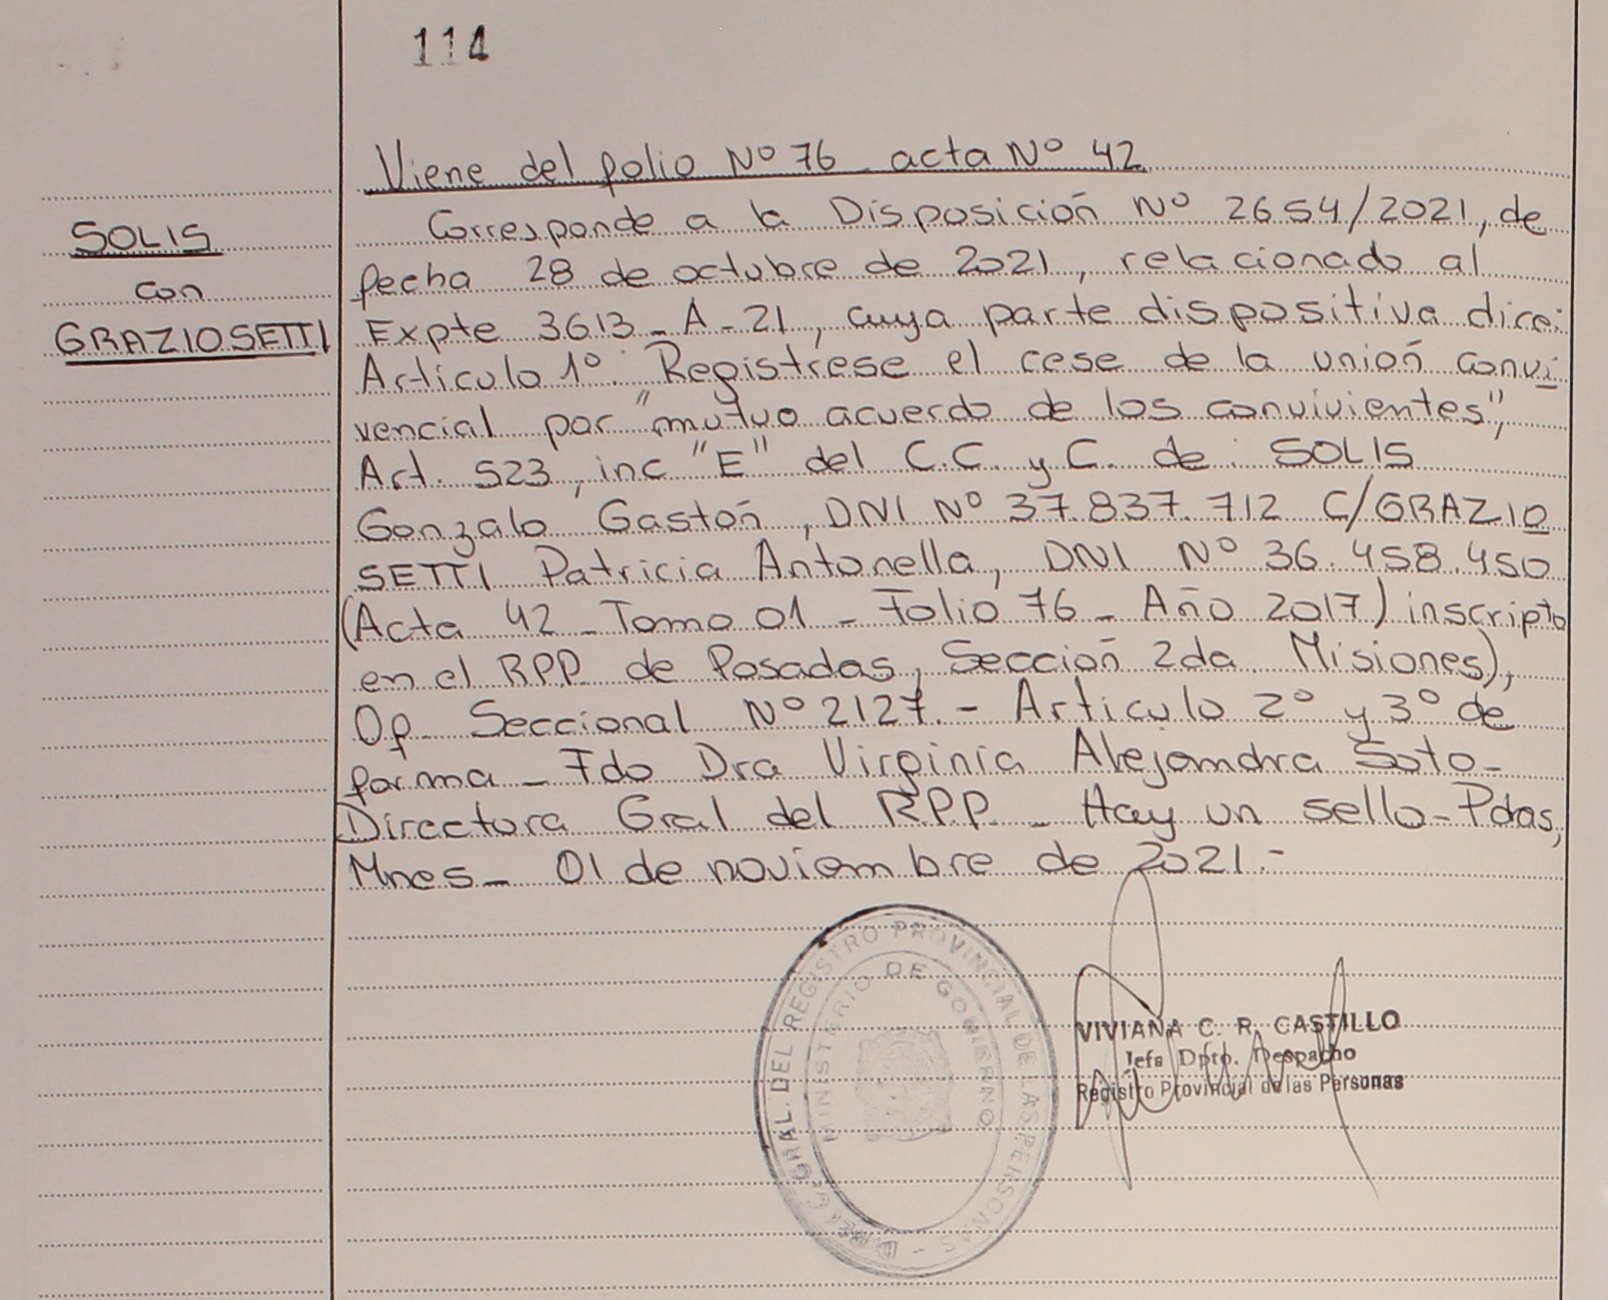 114
Viene del folio Nº 76 - acta Nº 42
SOLIS
con
GRAZIOSETTI
Corresponde a la Disposición Nº 2654/2021, de
fecha 28 de octubre de 2021, relacionado al
Expte 3613 - A - 21, cuya parte dispositiva dice:
Artículo 1º: Regístrese el cese de la unión convi
vencial por "mutuo acuerdo de los convivientes",
Art. 523, inc "E" del C.C. y C. de: SOLIS
Gonzalo Gastón, DNI Nº 37.837.712 C/GRAZIO
SETTI Patricia Antonella, DNI Nº 36.458.450
(Acta 42 - Tomo 01 - Folio 76 - Año 2017) inscripto
en el RPP de Posadas, Sección 2da Misiones),
Of. Seccional Nº 2127. - Artículo 2º y 3º de
forma - Fdo Dra Virginia Alejandra Soto -
Directora Gral del R.P.P. - Hay un sello - Pdas,
Mnes - 01 de noviembre de 2021.-
GRAL. DEL REGISTRO PROVINCIAL DE LAS PERSONAS
MINISTERIO DE GOBIERNO
VIVIANA C. R. CASTILLO
Jefa Dpto. Despacho
Registro Provincial de las Personas